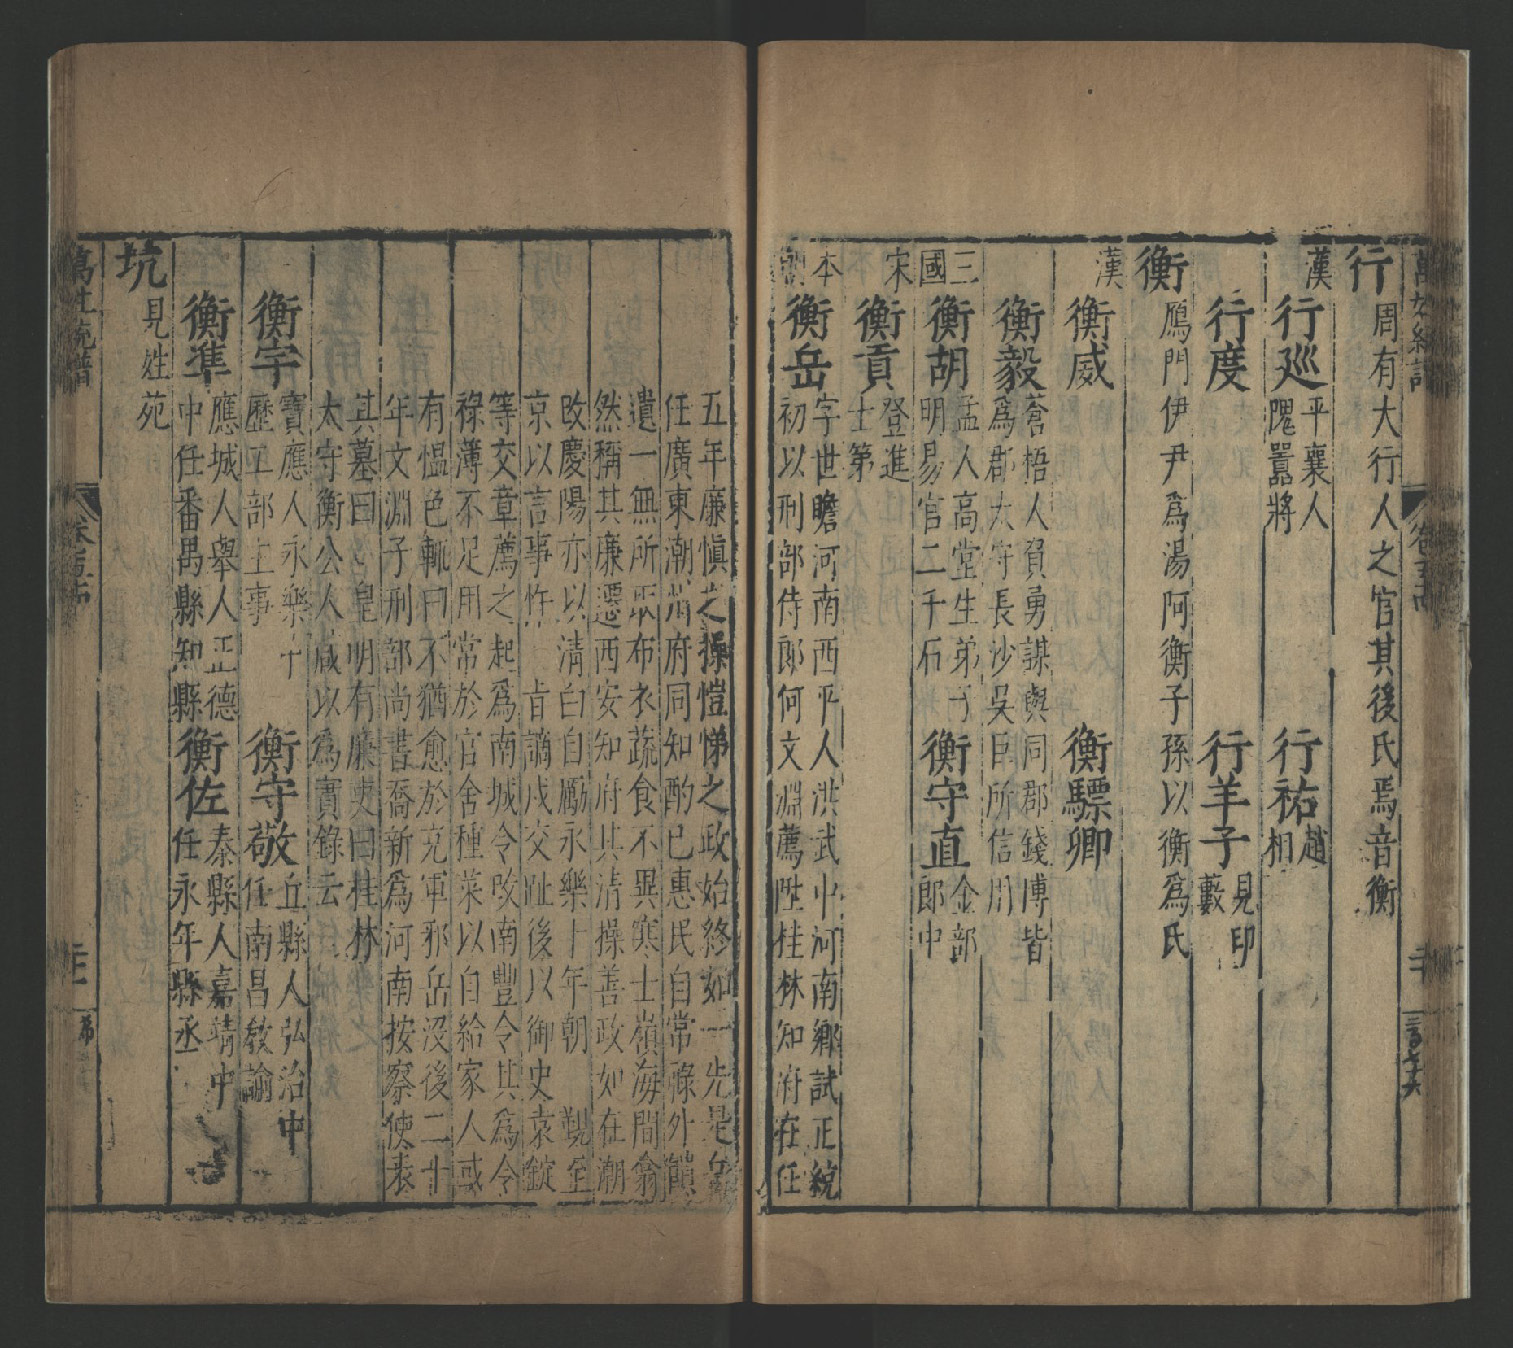 行
周有大行人之官其後氏焉音衡
漢
行廵
平襄人
隗囂將
行祐
趙
相
行度
行羊子
見印
藪
衡
鴈門伊尹為湯阿衡子孫以衡為氏
漢
衡威
衡驃卿
衡毅
蒼梧人負勇謀與同郡錢博皆
為郡太守長沙吳臣所信用
三國
衡胡
孟人高堂生弟子
明易官二千石
衡守直
金部
郎中
宋
衡貢
登進
士第
本朝
衡岳
字世瞻河南西平人洪武中河南鄉試正統
初以刑部侍郎何文淵薦陞桂林知府在任
五年廉慎之操愷悌之政始終如一先是岳
任廣東潮州府同知酌已惠民自常祿外饋
遺一無所取布衣蔬食不異寒士嶺海間翕
然稱其廉遷西安知府其清操善政如在潮
改慶陽亦以清白自勵永樂十年朝 覲至
京以言事忤 旨謫戍交趾後以御史袁錠
等交章薦之起為南城令改南豐令其為令
祿薄不足用常於官舍種菜以自給家人或
有慍色輒曰不猶愈於充軍邪岳沒後二十
年文淵子刑部尚書喬新為河南按察使表
其墓曰 皇明有廉吏曰桂林
太守衡公人咸以為實錄云
衡宇
寶應人永樂中
歷工部主事
衡守敬
丘縣人弘治中
任南昌教諭
衡準
應城人舉人正德
中任番禺縣知縣
衡佐
泰縣人嘉靖中
任永年縣丞
坑
見姓苑
萬姓統譜